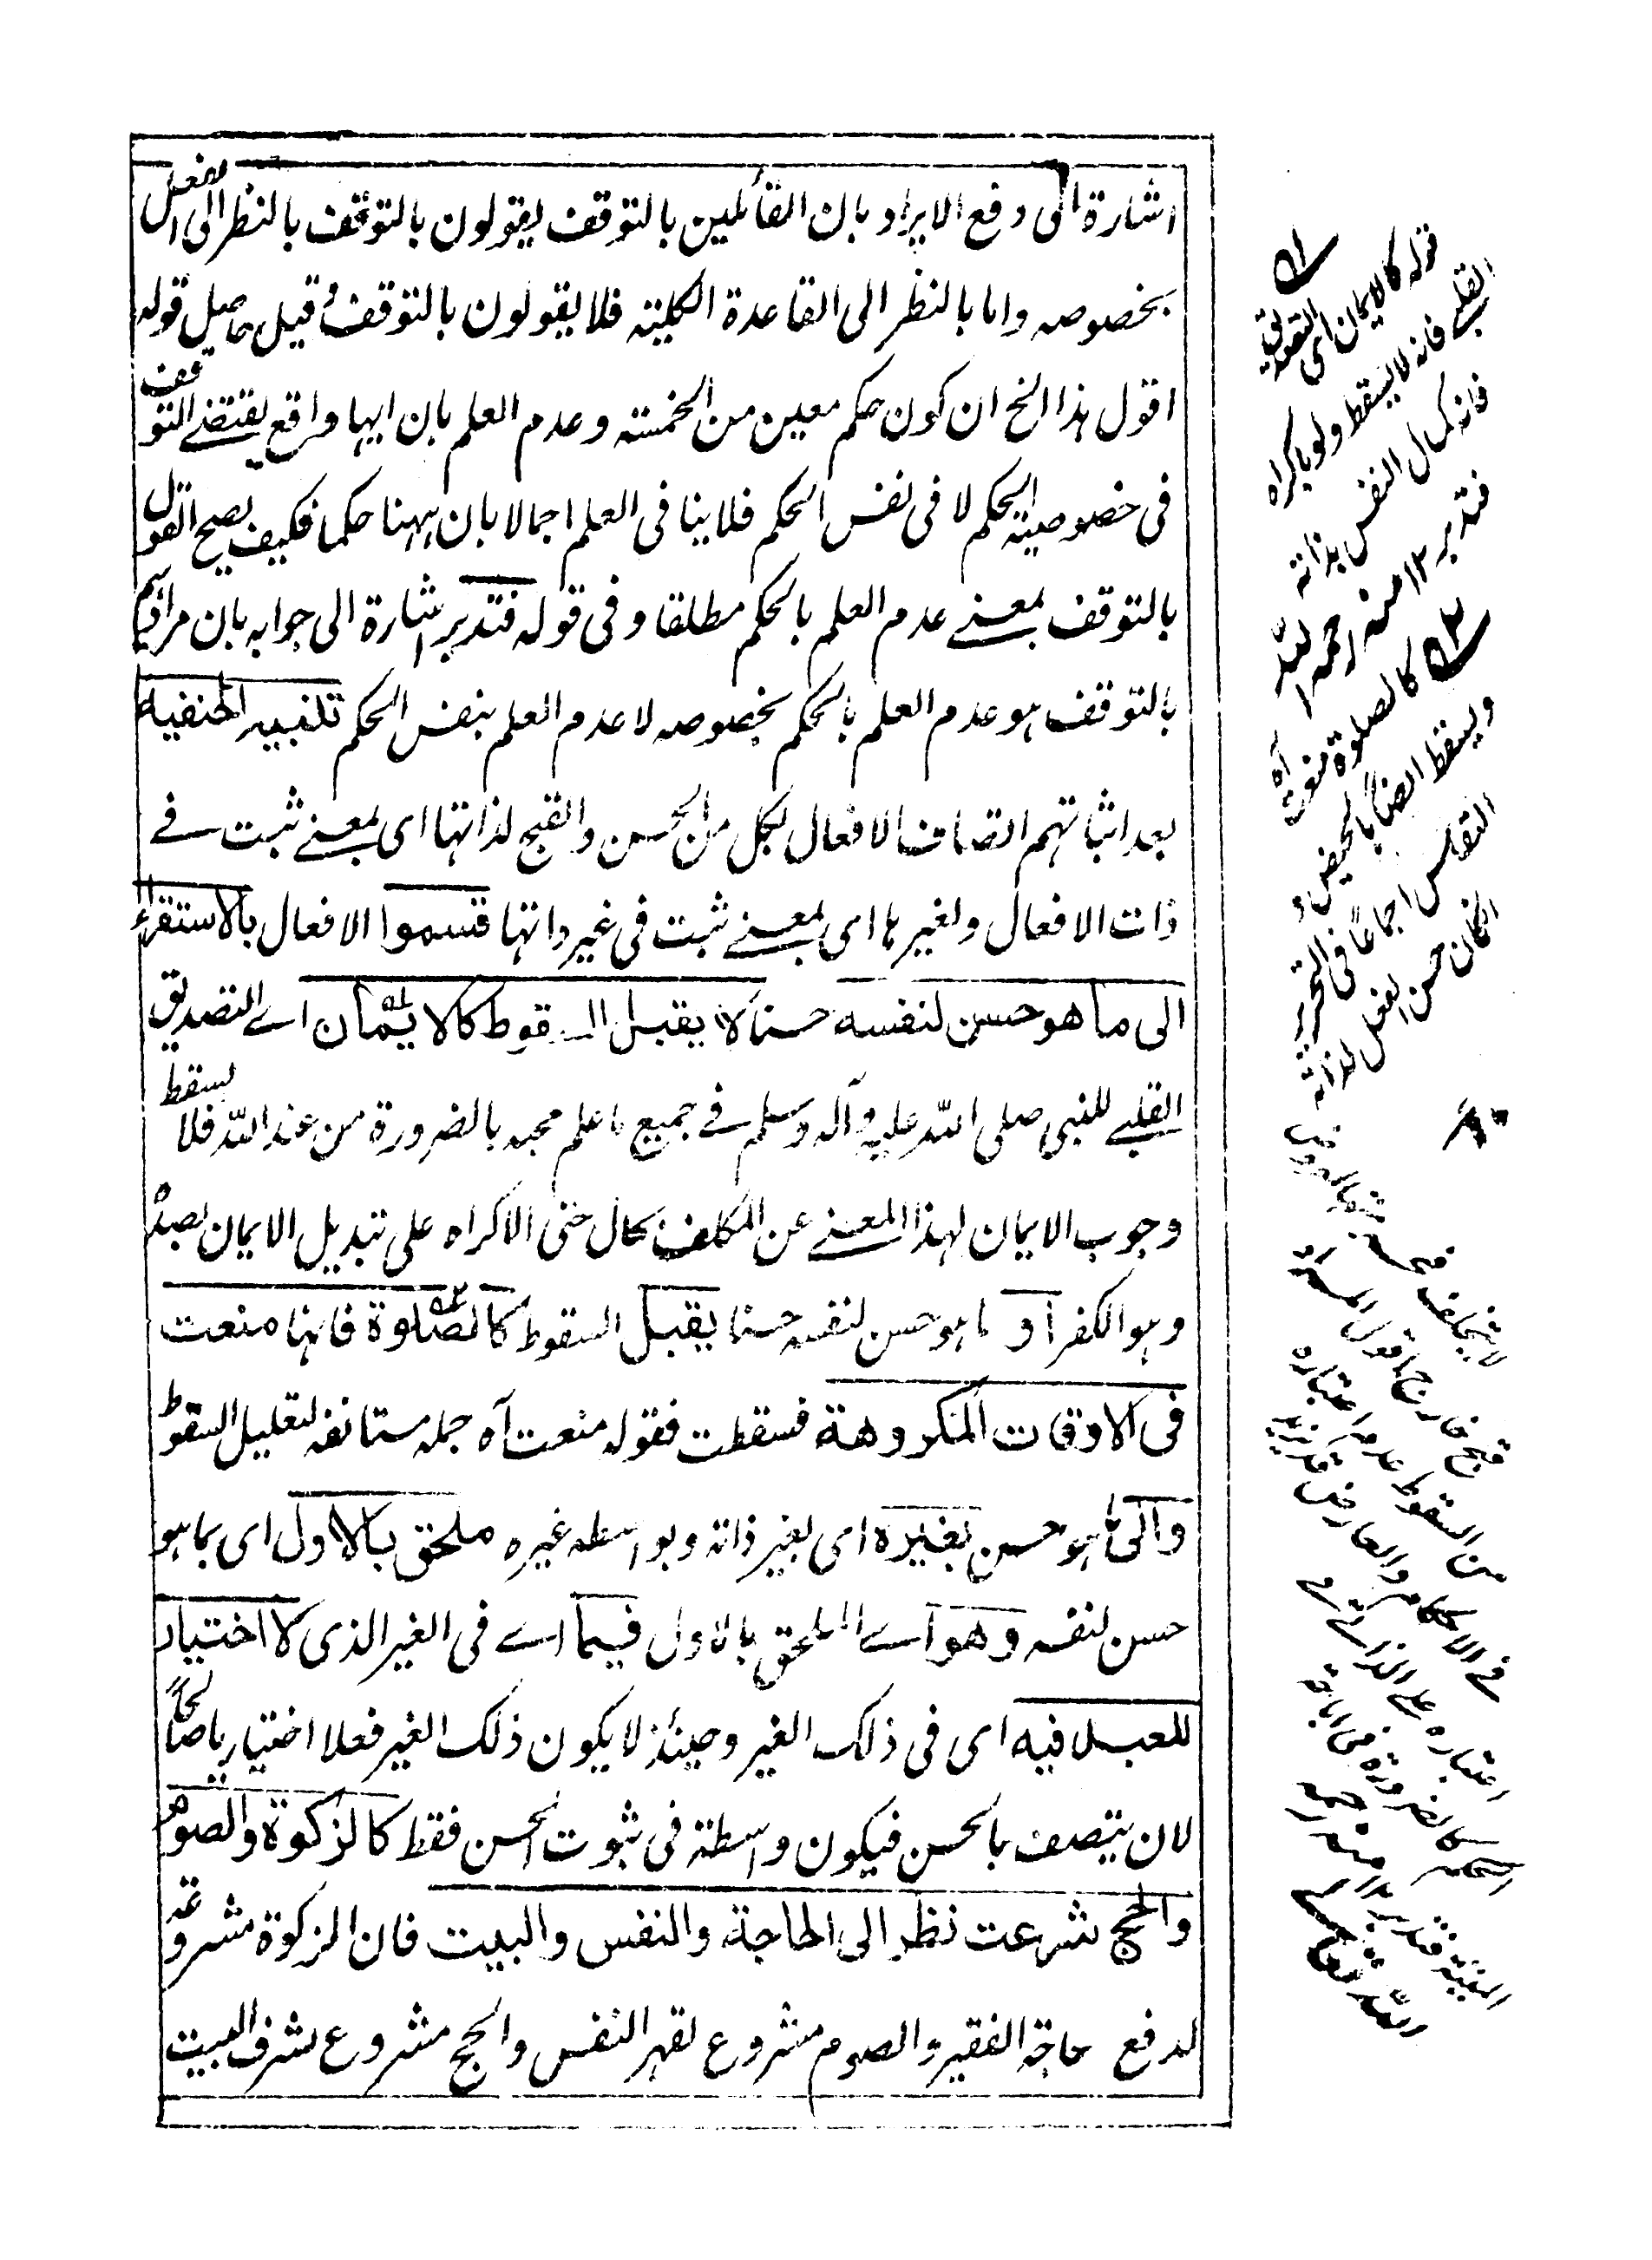 اشارة الى دفع الايراد بان القائلين بالتوقف يقولون بالتوقف بالنظر الى الفعل
بخصوصه واما بالنظر الى القاعدة الكلية فلا يقولون بالتوقف قيل حاصل قوله
اقول هذا الخ ان كون حكم معين من الخمسة وعدم العلم بان ايها واقع يقتضے التوقف
فى خصوصية الحكم لا فى نفس الحكم فلا ينافى العلم اجمالا بان ههنا حكما فكيف يصح القول
بالتوقف بمعنے عدم العلم بالحكم مطلقا وفى قوله فتدبر اشارة الى جوابه بان مرادهم
بالتوقف هو عدم العلم بالحكم بخصوصه لا عدم العلم بنفس الحكم تنبيه الحنفية
بعد اثباتهم اتصاف الافعال بكل من الحسن والقبح لذاتها اى بمعنے ثبت فے
ذات الافعال ولغيرها اى بمعنے ثبت فى غير ذاتها قسموا الافعال بالاستقراء
الى ما هو حسن لنفسه حسنا لا يقبل السقوط كالايمان اے التصديق
القلبے للنبى صلى الله عليه وآله وسلم فے جميع ما علم مجيه بالضرورة من عند الله فلا يسقط
وجوب الايمان لهذا المعنے عن المكلف بحال حتى الاكراه على تبديل الايمان بضده
وهو الكفر او ما هو حسن لنفسه حسنا يقبل السقوط كالصلوة فانها منعت
فى الاوقات المكروهة فسقطت فقوله منعت آه جملة مستانفة لتعليل السقوط
والى ما هو حسن لغيره اى لغير ذاته وبواسطه غيره ملحق بالاول اى بما هو
حسن لنفسه وهو اے الملحق بالاول فيما اے فى الغير الذى لا اختيار
للعبد فيه اى فى ذلك الغير وحينئذ لا يكون ذلك الغير فعلا اختياريا صالحا
لان يتصف بالحسن فيكون واسطة فى ثبوت الحسن فقط كالزكوة والصوم
والحج شرعت نظرا الى الحاجة والنفس والبيت فان الزكوة مشروعة
لدفع حاجة الفقير والصوم مشروع لقهر النفس والحج مشروع لشرف البيت
قوله كالايمان اى التصديق
القلبے فانه لا يسقط ولو باكراه
فانه كمال النفس بذاته
فتدبر ١٢ منه رحمه الله
كالصلوة منعت آه
ويسقط ايضا بالحيض و
النفاس اجماعا فى التحرير
ان كان حسن الفعل لذاته
لا يتخلف
من السقوط عدم اعتباره